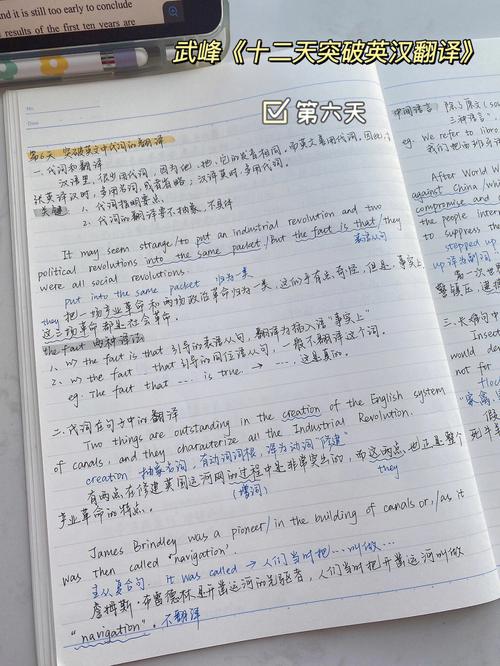 and it is still too early to conclude
results of the first ten years are
武峰《十二天突破英汉翻译》
第六天
No.
Date
第6天 突破英文中代词的翻译
一、代词和翻译
汉语里，很少用代词，因为他、她、它的发音相同，而英文善用代词。因此，
汉英译汉时，多用名词，或者省略；汉译英时，多用代词。
关键：1. 代词指明要点
2. 代词的翻译要不抽象，不具体
It may seem strange/to put an industrial revolution and two
political revolutions into the same packet,/But the fact is that/they
were all social revolutions. 表语从句
put into the same packet 归为一类
they 把一场产业革命和两场政治革命归为一类，这似乎有点奇怪，但是，事实上
这三场革命都是社会革命。
the fact 两种译法
1. w> the fact is that 引导的表语从句，翻译为插入语"事实上"
2. w> the fact ... that 引导的同位语从句，一般不翻译这个词。
eg. The fact that ... is true. → ... 这是真的。
二、代词在句子中的翻译
Two things are outstanding in the creation of the English system
of canals, and they characterize all the Industrial Revolution.
creation 抽象名词，有动词词根，译为动词"修建"
有两点在修建英国运河网的过程中是非常突出的，而这两点也正是整个
(增词) they
产业革命的特点。
James Brindley was a pioneer/in the building of canals or,/as it
was then called 'navigation'.
主从复合句. it was called → 人们当时把...叫做...
詹姆斯·布雷德林是开凿运河的先驱者，人们当时把开凿运河叫做
"navigation". 不翻译
中间语言
三种语言"
eg. We refer to libr
我们把
After World W
against China/w
compromise and
the people inter
to suppress the
stepped up
up 译为副词
第一次
三、
Insect
would de
not for
flocks and